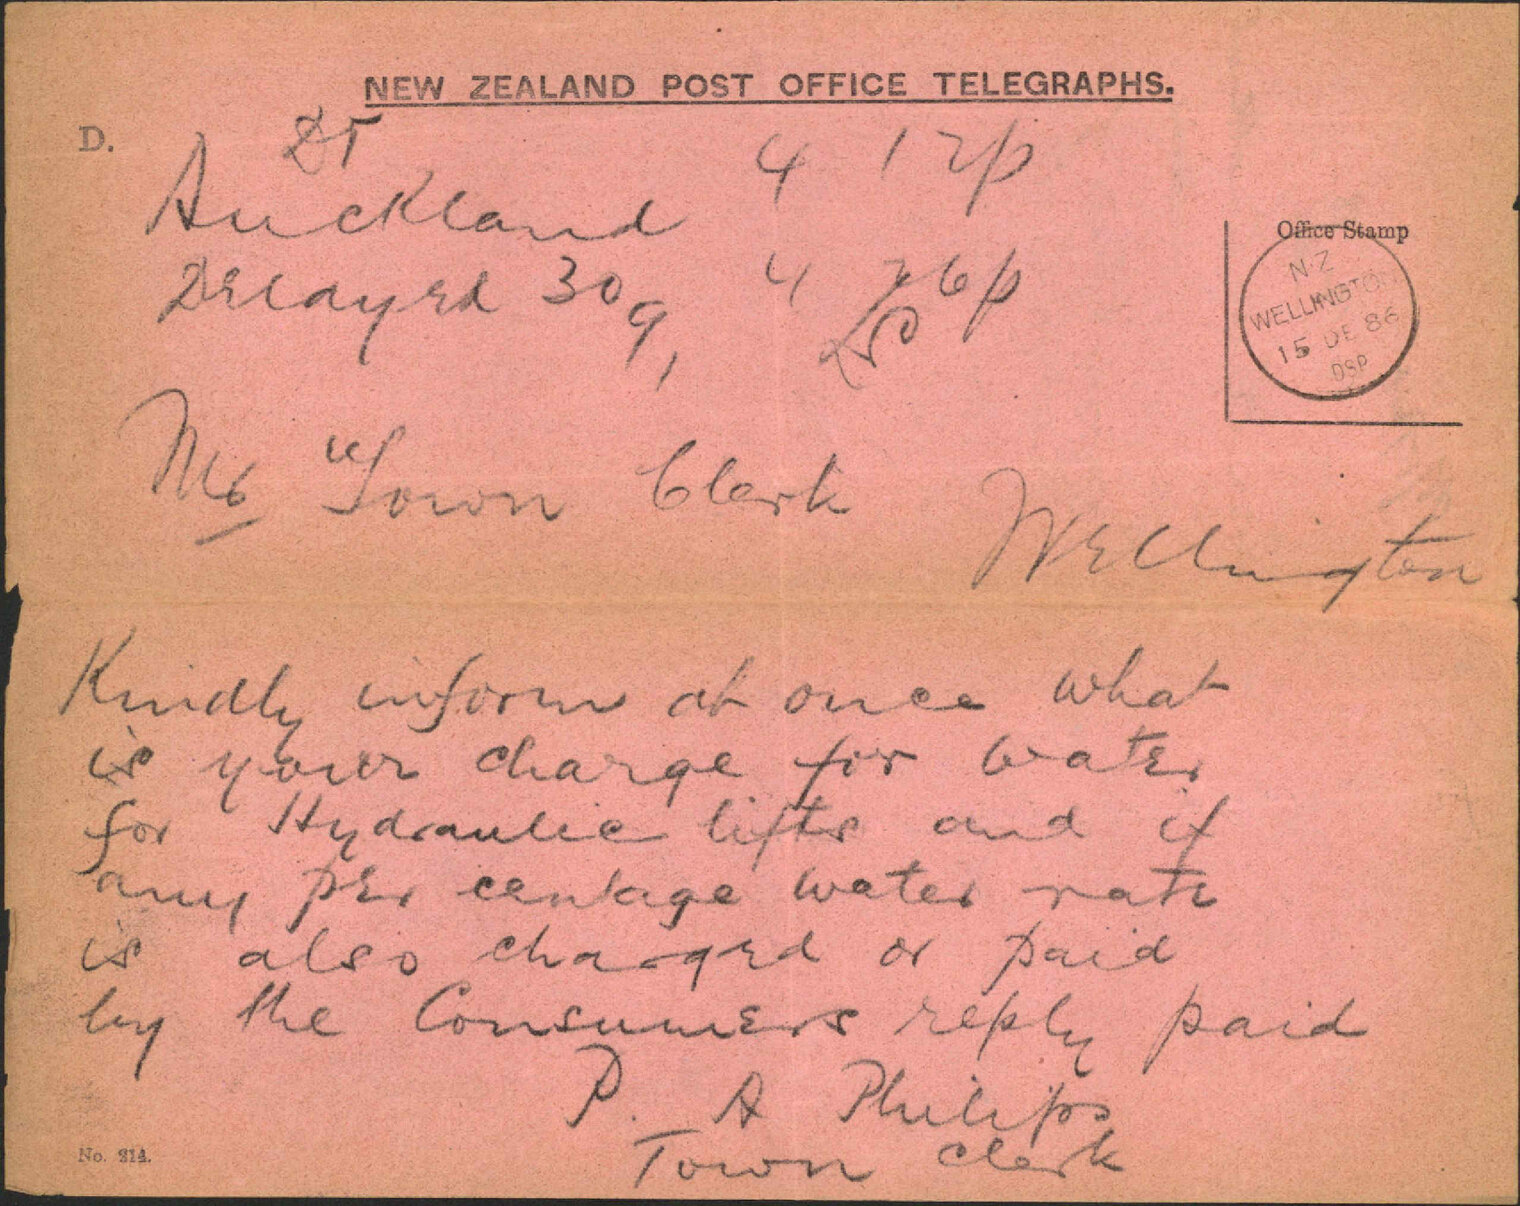 NEW ZEALAND POST OFFICE TELEGRAPHS.
D.
DT
Auckland 4 12p
Office Stamp
N·Z
WELLINGTON
15 DE 86
DSP
Delayed 30 4 26p
9,
Town Clerk
Wellington
Kindly inform at once what
is your charge for water
for Hydraulic lifts and if
any per centage water rate
is also charged or paid
by the Consumers reply paid
P. A Philips
Town Clerk
No. 214.